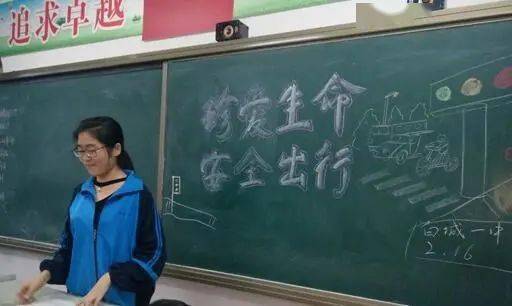 追求卓越
珍爱生命
安全出行
白城一中
2.16